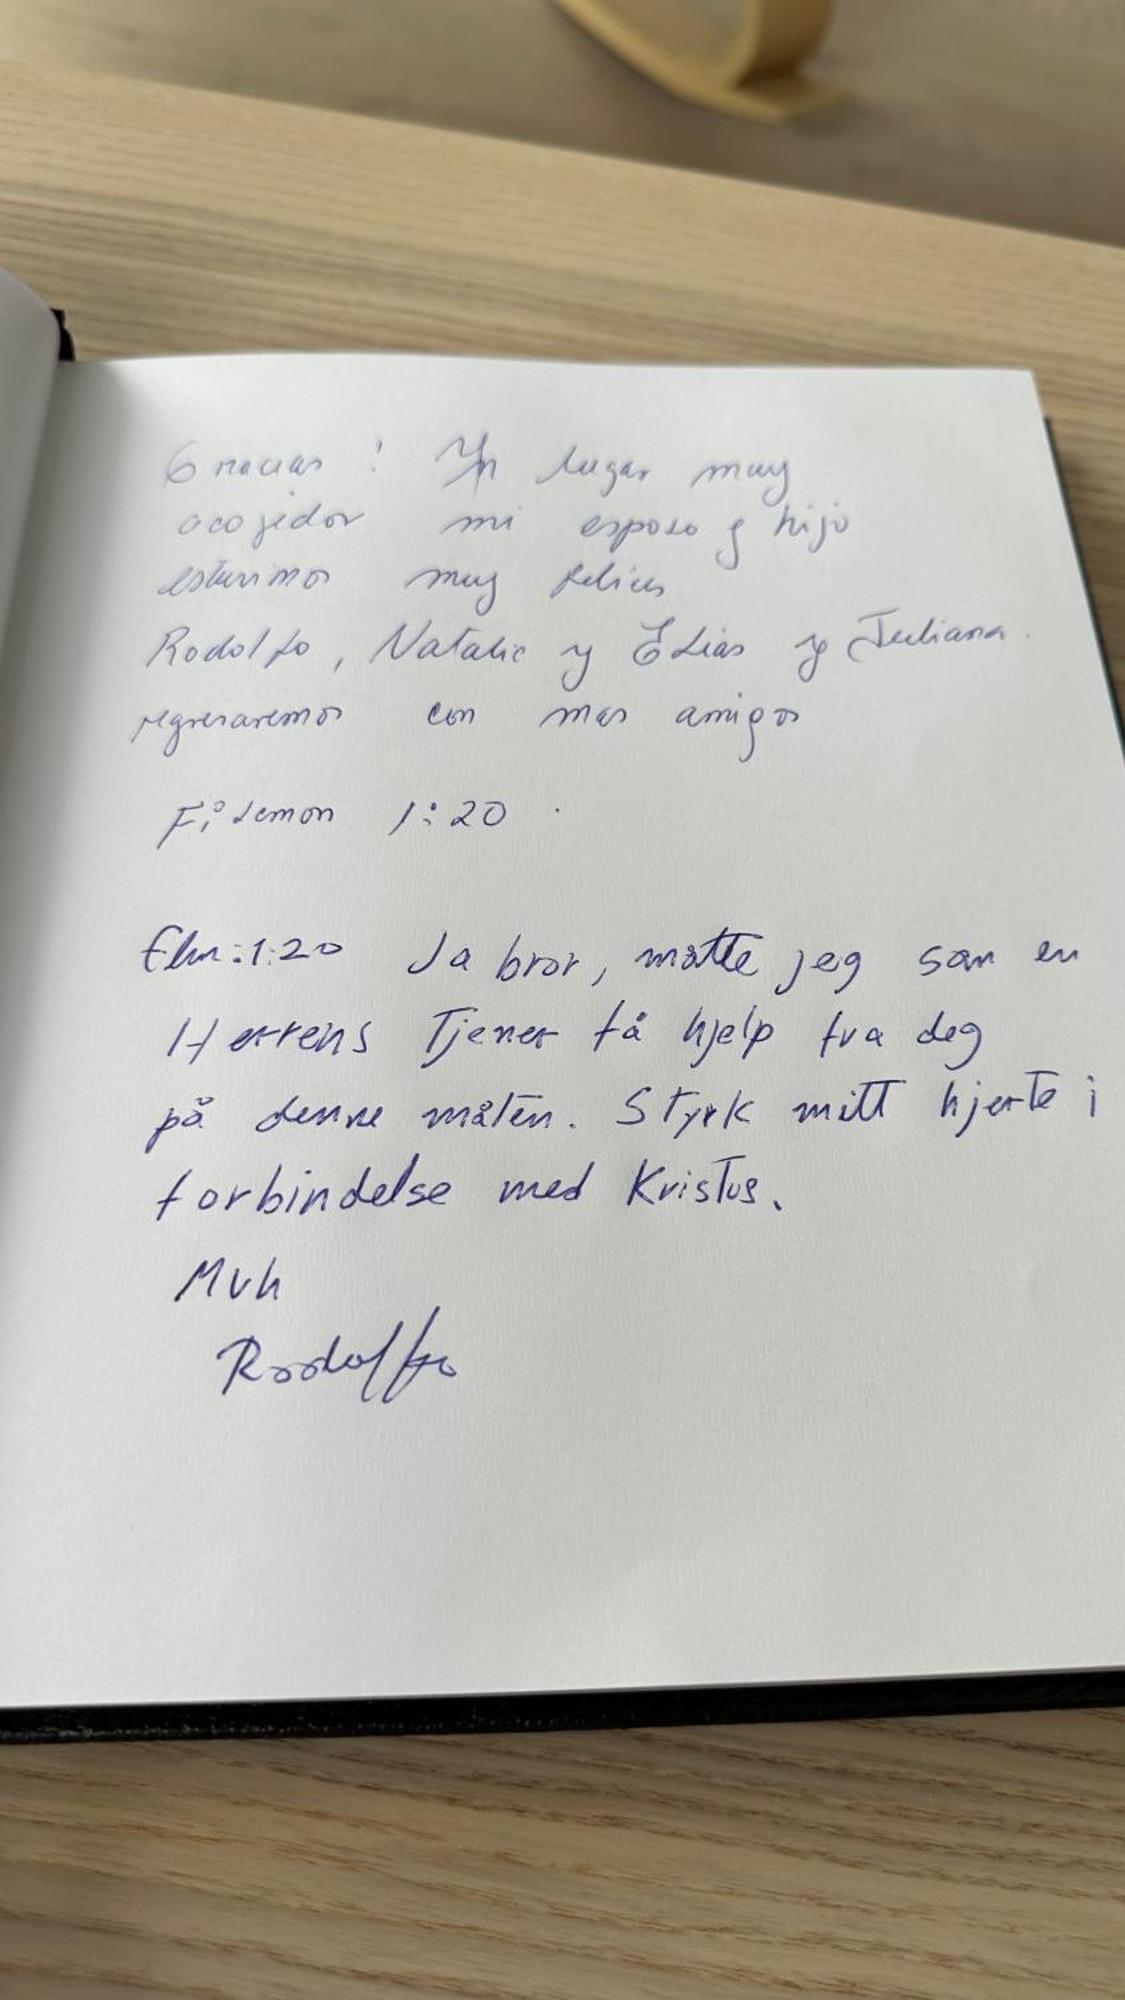 Gracias ! Un lugar muy
acojedor mi esposo y hijo
estuvimos muy felices
Rodolfo, Natalie y Elias y Juliana.
regresaremos con mas amigos
Filemon 1:20
Flm:1:20 Ja bror, måtte jeg som en
Herrens Tjener få hjelp fra deg
på denne måten. Styrk mitt hjerte i
forbindelse med Kristus.
Mvh
Rodolfo